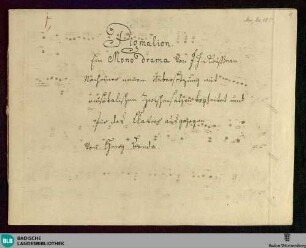 Pigmalion.
Ein Monodrama von J. J. Rousseau
Nach einer neuen Übersetzung mit
musikalischen Zwischensätzen begleitet und
für das Clavier ausgezogen
von Georg Benda.
BLB
BADISCHE
LANDESBIBLIOTHEK
Baden-Württemberg